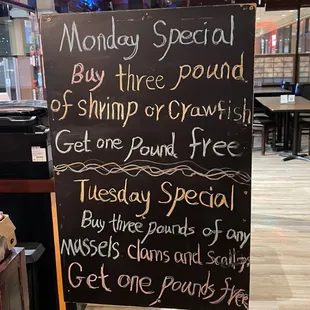 Monday Special
Buy three pound
of shrimp or Crawfish
Get one Pound free
Tuesday Special
Buy three pounds of any
mussels clams and
Get one pounds free